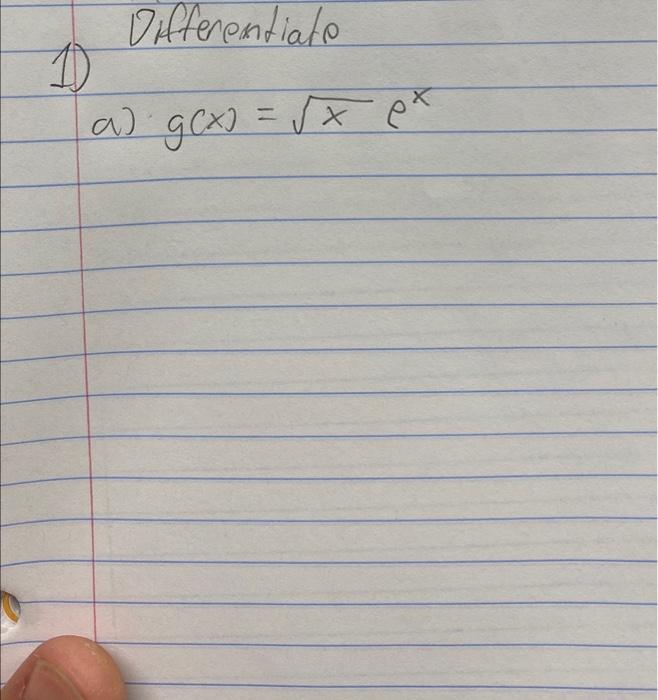 Differentiate
1)
a) g(x) = √x e^x